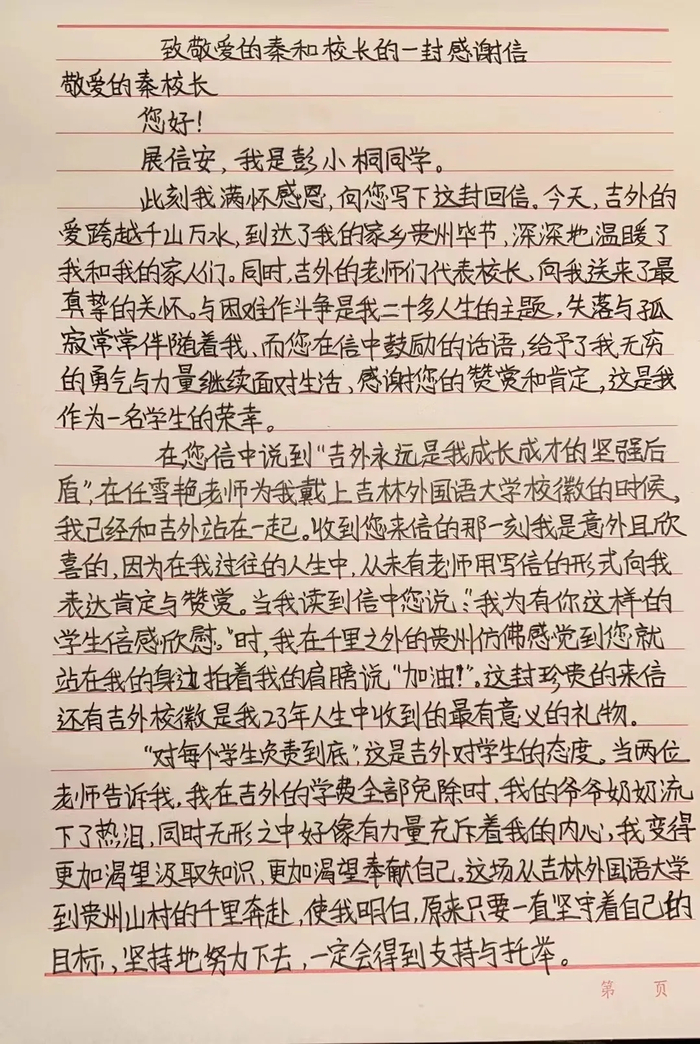 致敬爱的秦和校长的一封感谢信
敬爱的秦校长
您好！
展信安，我是彭小桐同学。
此刻我满怀感恩，向您写下这封回信。今天，吉外的
爱跨越千山万水，到达了我的家乡贵州毕节，深深地温暖了
我和我的家人们。同时，吉外的老师们代表校长，向我送来了最
真挚的关怀。与困难作斗争是我二十多人生的主题，失落与孤
寂常常伴随着我，而您在信中鼓励的话语，给予了我无穷
的勇气与力量继续面对生活，感谢您的赞赏和肯定，这是我
作为一名学生的荣幸。
在您信中说到“吉外永远是我成长成才的坚强后
盾”，在任雪艳老师为我戴上吉林外国语大学校徽的时候，
我已经和吉外站在一起。收到您来信的那一刻我是意外且欣
喜的，因为在我过往的人生中，从未有老师用写信的形式向我
表达肯定与赞赏。当我读到信中您说：“我为有你这样的
学生倍感欣慰。”时，我在千里之外的贵州仿佛感觉到您就
站在我的身边拍着我的肩膀说“加油！”。这封珍贵的来信
还有吉外校徽是我23年人生中收到的最有意义的礼物。
“对每个学生负责到底”，这是吉外对学生的态度。当两位
老师告诉我，我在吉外的学费全部免除时，我的爷爷奶奶流
下了热泪，同时无形之中好像有力量充斥着我的内心，我变得
更加渴望汲取知识，更加渴望奉献自己。这场从吉林外国语大学
到贵州山村的千里奔赴，使我明白，原来只要一直坚守着自己的
目标，坚持地努力下去，一定会得到支持与托举。
第 页